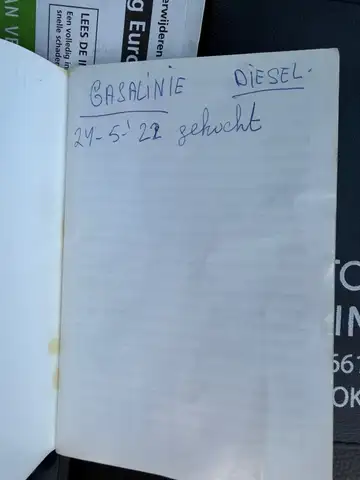 AN VE
LEES DE I
Een volledig in
snelle schade
erwijderen
g Euro
GASALINIE DIESEL.
24-5-'22 gekocht
TO
IN
661
OK